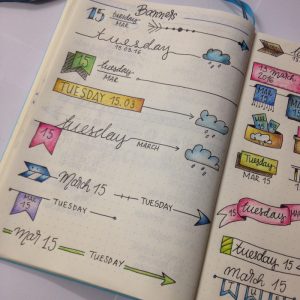 Banners
15 tuesday
MAR
tuesday
15.03.16
15 tuesday
MAR
TUESDAY 15.03
15 tuesday
MARCH
MAR 15 March 15
TUESDAY TUESDAY
mar 15 TUESDAY
15 march
2016
Tuesday
MAR 15
15 tuesday MARCH
tuesday 15
march 15